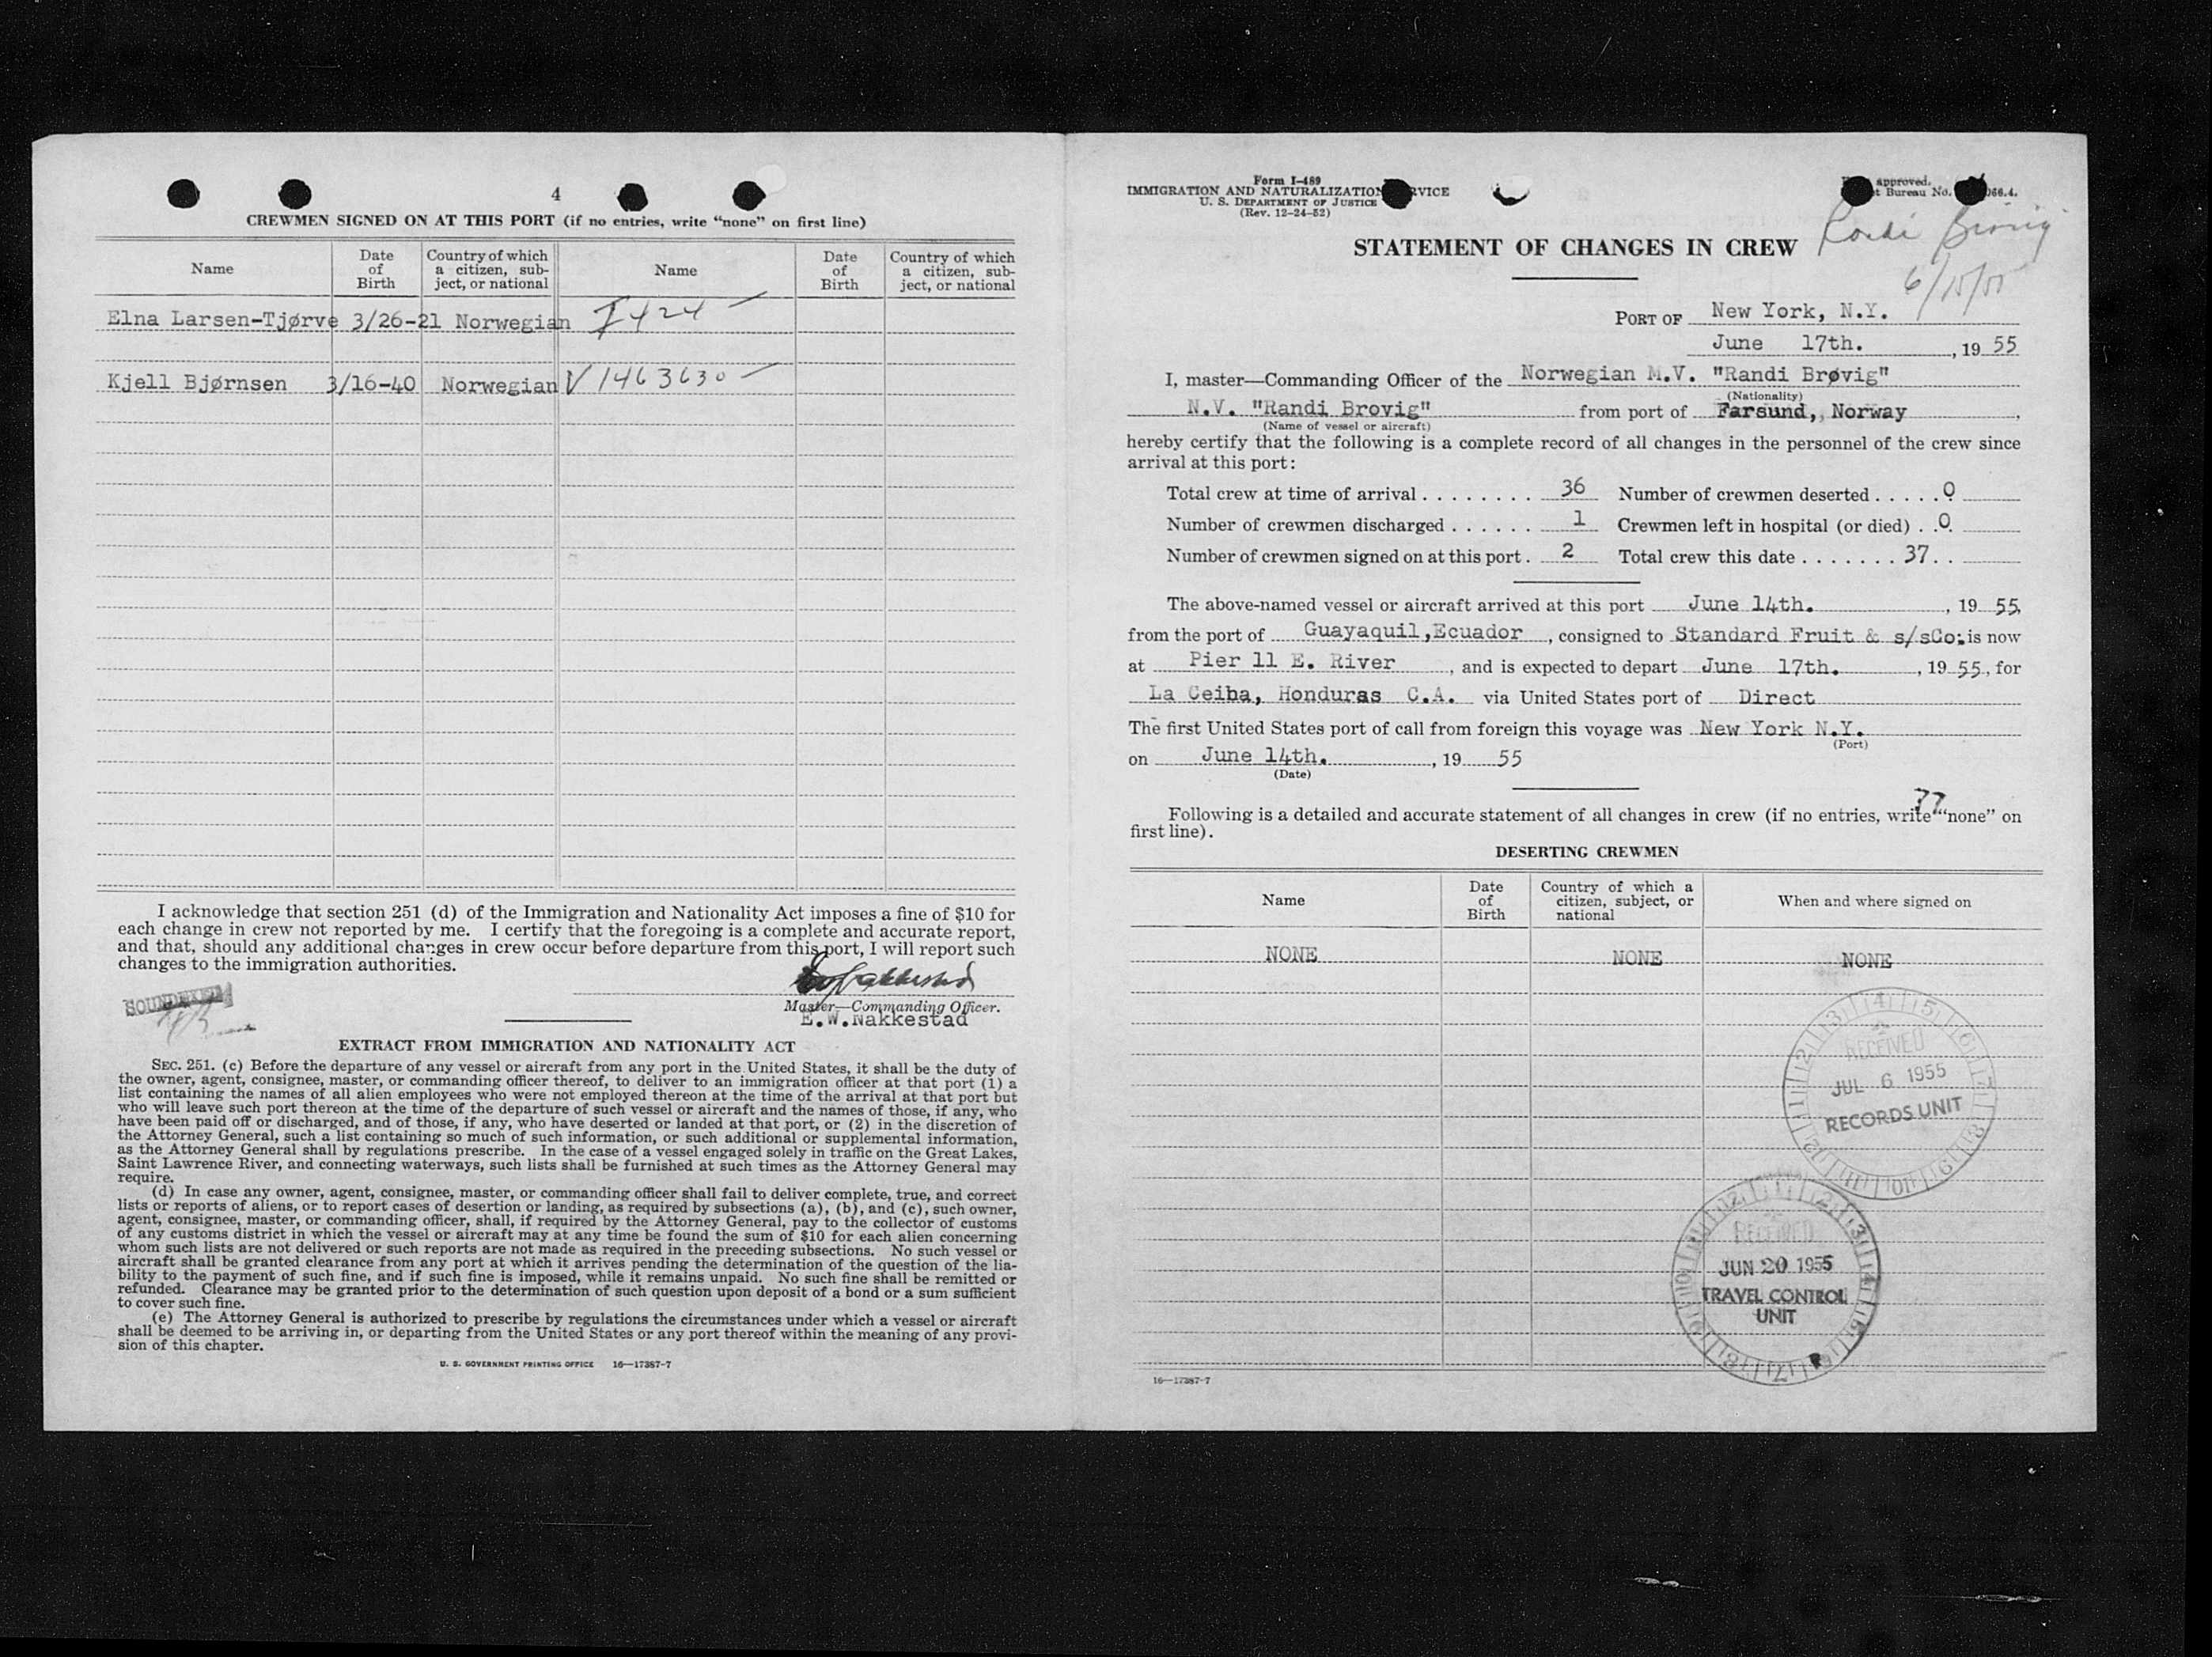 4
CREWMEN SIGNED ON AT THIS PORT (if no entries, write "none" on first line)
Name
Date of Birth
Country of which a citizen, sub-ject, or national
Name
Date of Birth
Country of which a citizen, sub-ject, or national
Elna Larsen-Tjørve 3/26-21 Norwegian I424 —
Kjell Bjørnsen 3/16-40 Norwegian V 1463630 —
I acknowledge that section 251 (d) of the Immigration and Nationality Act imposes a fine of $10 for
each change in crew not reported by me. I certify that the foregoing is a complete and accurate report,
and that, should any additional changes in crew occur before departure from this port, I will report such
changes to the immigration authorities.
Master—Commanding Officer.
E.W.Nakkestad
EXTRACT FROM IMMIGRATION AND NATIONALITY ACT
SEC. 251. (c) Before the departure of any vessel or aircraft from any port in the United States, it shall be the duty of
the owner, agent, consignee, master, or commanding officer thereof, to deliver to an immigration officer at that port (1) a
list containing the names of all alien employees who were not employed thereon at the time of the arrival at that port but
who will leave such port thereon at the time of the departure of such vessel or aircraft and the names of those, if any, who
have been paid off or discharged, and of those, if any, who have deserted or landed at that port, or (2) in the discretion of
the Attorney General, such a list containing so much of such information, or such additional or supplemental information,
as the Attorney General shall by regulations prescribe. In the case of a vessel engaged solely in traffic on the Great Lakes,
Saint Lawrence River, and connecting waterways, such lists shall be furnished at such times as the Attorney General may
require.
(d) In case any owner, agent, consignee, master, or commanding officer shall fail to deliver complete, true, and correct
lists or reports of aliens, or to report cases of desertion or landing, as required by subsections (a), (b), and (c), such owner,
agent, consignee, master, or commanding officer, shall, if required by the Attorney General, pay to the collector of customs
of any customs district in which the vessel or aircraft may at any time be found the sum of $10 for each alien concerning
whom such lists are not delivered or such reports are not made as required in the preceding subsections. No such vessel or
aircraft shall be granted clearance from any port at which it arrives pending the determination of the question of the lia-
bility to the payment of such fine, and if such fine is imposed, while it remains unpaid. No such fine shall be remitted or
refunded. Clearance may be granted prior to the determination of such question upon deposit of a bond or a sum sufficient
to cover such fine.
(e) The Attorney General is authorized to prescribe by regulations the circumstances under which a vessel or aircraft
shall be deemed to be arriving in, or departing from the United States or any port thereof within the meaning of any provi-
sion of this chapter.
U. S. GOVERNMENT PRINTING OFFICE 16—17387-7
Form I-489
IMMIGRATION AND NATURALIZATION SERVICE
U. S. DEPARTMENT OF JUSTICE
(Rev. 12-24-52)
approved.
t Bureau No. 066.4.
Randi Brovig
6/15/55
STATEMENT OF CHANGES IN CREW
PORT OF New York, N.Y.
June 17th. , 19 55
I, master—Commanding Officer of the Norwegian M.V. "Randi Brøvig"
(Nationality)
N.V. "Randi Brovig" from port of Farsund, Norway ,
(Name of vessel or aircraft)
hereby certify that the following is a complete record of all changes in the personnel of the crew since
arrival at this port:
Total crew at time of arrival . . . . . . . . 36 Number of crewmen deserted . . . . . 0
Number of crewmen discharged . . . . . . 1 Crewmen left in hospital (or died) . . 0
Number of crewmen signed on at this port . 2 Total crew this date . . . . . . . 37 . .
The above-named vessel or aircraft arrived at this port June 14th. , 19 55,
from the port of Guayaquil,Ecuador , consigned to Standard Fruit & s/sCo; is now
at Pier 11 E. River , and is expected to depart June 17th. , 19 55, for
La Ceiba, Honduras C.A. via United States port of Direct
The first United States port of call from foreign this voyage was New York N.Y.
(Port)
on June 14th. , 19 55
(Date)
77
Following is a detailed and accurate statement of all changes in crew (if no entries, write "none" on
first line).
DESERTING CREWMEN
Name
Date of Birth
Country of which a citizen, subject, or national
When and where signed on
NONE NONE NONE
RECEIVED
JUL 6 1955
RECORDS UNIT
RECEIVED
JUN 20 1955
TRAVEL CONTROL
UNIT
16—17387-7